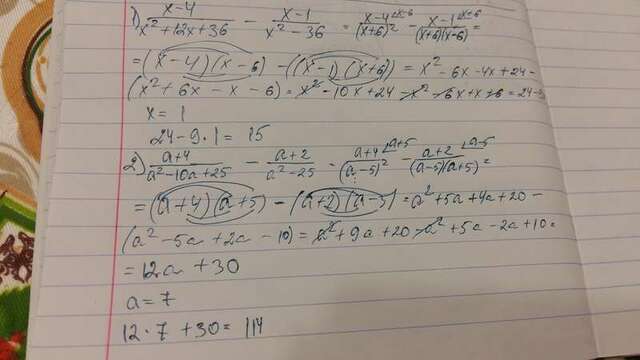 1) (x-4)/(x²+12x+36) - (x-1)/(x²-36) = (x-4)/(x+6)² - (x-1)/((x+6)(x-6)) =
=(x-4)(x-6) - ((x-1)(x+6)) = x² - 6x - 4x + 24 -
(x² + 6x - x - 6) = x² - 10x + 24 - x² - 6x + x + 6 = 24 -
x = 1
24 - 9 · 1 = 15
2) (a+4)/(a²-10a+25) - (a+2)/(a²-25) = (a+4)/(a-5)² - (a+2)/((a-5)(a+5)) =
=(a+4)(a+5) - (a+2)(a-5) = a² + 5a + 4a + 20 -
(a² - 5a + 2a - 10) = a² + 9a + 20 - a² + 5a - 2a + 10 =
= 12a + 30
a = 7
12 · 7 + 30 = 114